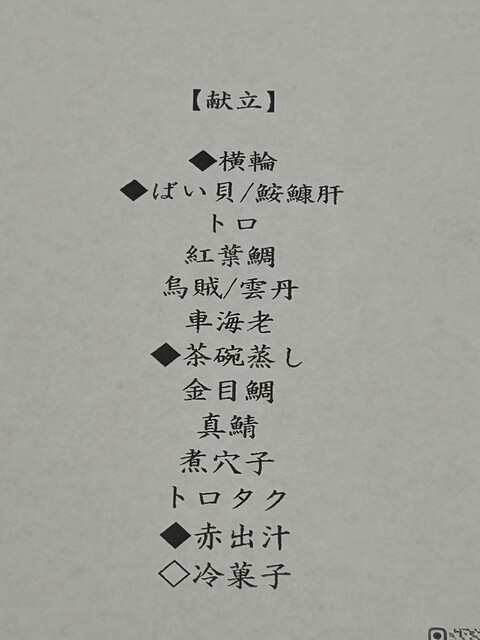 【献立】
◆横輪
◆ばい貝/鮟鱇肝
トロ
紅葉鯛
烏賊/雲丹
車海老
◆茶碗蒸し
金目鯛
真鯖
煮穴子
トロタク
◆赤出汁
◇冷菓子